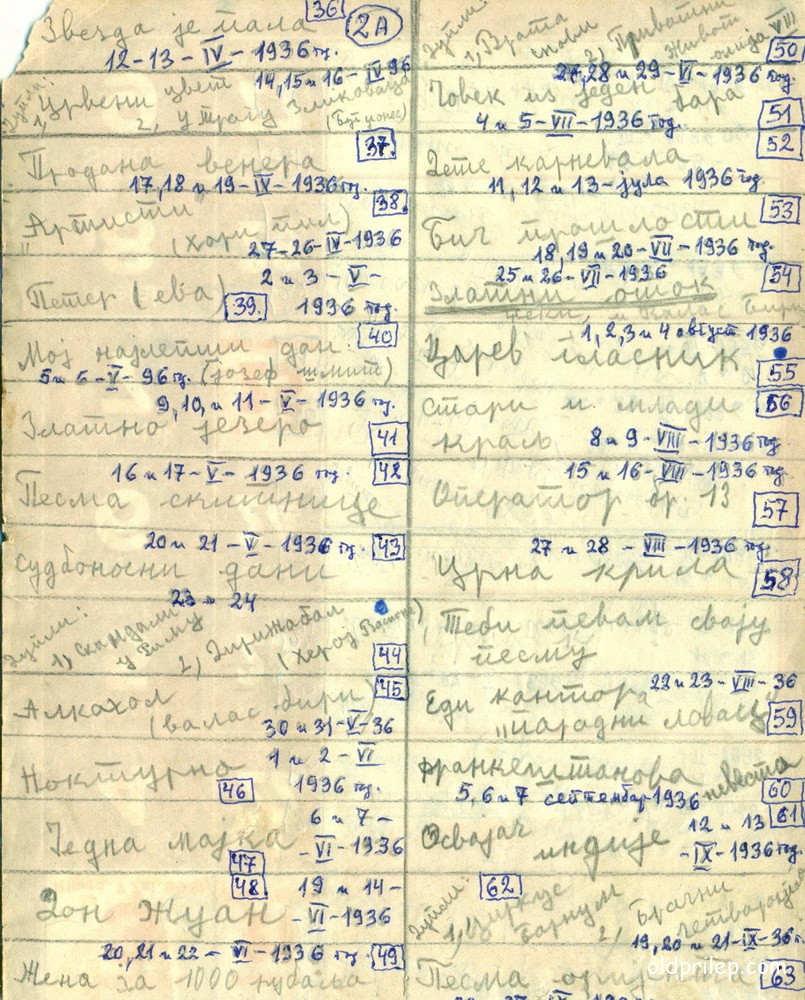 36
2A
Звезда је пала
12-13-IV-1936 год.
14,15 и 16-IV 96
Дупли:
1, Црвени цвет
2, у трагу Зликоваца
(Бук Џонес)
37.
Продана венера
17,18 и 19-IV-1936 год.
38.
"Артисти"
(Хари Пил)
27-26-IV-1936
2 и 3-V-
Петер (ева)
39.
1936 год.
40
Мој најлепши дан
5 и 6-V-96 год. (Јозеф Шмит)
9,10, и 11-V-1936 год.
Златно језеро
41
16 и 17-V-1936 год.
42
Песма скитнице
20 и 21-V-1936 год.
43
Судбоносни дани
23 и 24
Дупли:
1) Скандали
у Риму
2, Дирижабал
44
45
Алкохол
(валас бири)
30 и 31-V-36
1 и 2-VI
Ноктурно
46
1936 год.
6 и 7-
Једна мајка
-VI-1936
47
48
19 и 14-
Дон Жуан
-VI-1936
20,21 и 22-VI-1936 год.
49
Жена за 1000 рубаља
Дупли:
1, Врата
снови
2, Приватни
живот
VIII
50
27,28 и 29-VI-1936 год.
Човек из једен бара
51
4 и 5-VII-1936 год.
52
Дете карневала
11,12 и 13-јула 1936 год
53
Бич прошлости
18,19 и 20-VII-1936 год.
25 и 26-VII-1936
54
Златни
1,2,3 и 4 август 1936
Царев гласник
55
56
Стари и млади
краљ
8 и 9-VIII-1936 год.
15 и 16-VIII-1936 год.
Оператор бр. 13
57
27 и 28-VIII-1936 год.
Црна крила
58
Теби певам своју
песму
22 и 23-VIII-36
Еди кантора
"парадни ловац"
59
Франкенштанова невеста
60
5, 6 и 7 септембар 1936
61
12 и 13
Освајач
индије
-IX-1936 год.
62
Дупли:
1, Циркус
Барнум
2, Брачни
19,20 и 21-IX-36 г.
oldprilep.com
Песма
63